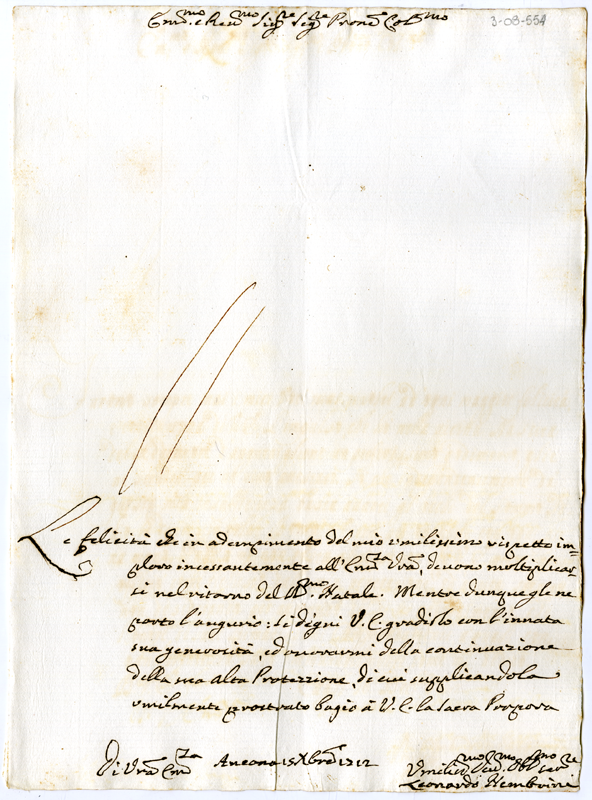 Em.mo e Rev.mo Sig.re Sig.re Pron.e Col.mo
3-08-554
Le felicità che in adempimento del mio umilissimo rispetto im=
ploro incessantemente all'Em.za Vrã, devono moltiplicar=
si nel ritorno del SS.mo Natale. Mentre dunque gle ne
porto l'augurio: si degni V. E. gradirlo con l'innata
sua generosità, ed onorarmi della continuazione
della sua alta Protezzione, di cui supplicandola
umilmente prostrato bagio à V. E. la sacra Propora
Di Vrã Em.za Ancona 15 Xbre 1712
Umiliss.mo Dev.mo Obl.mo Ser.re
Leonardo